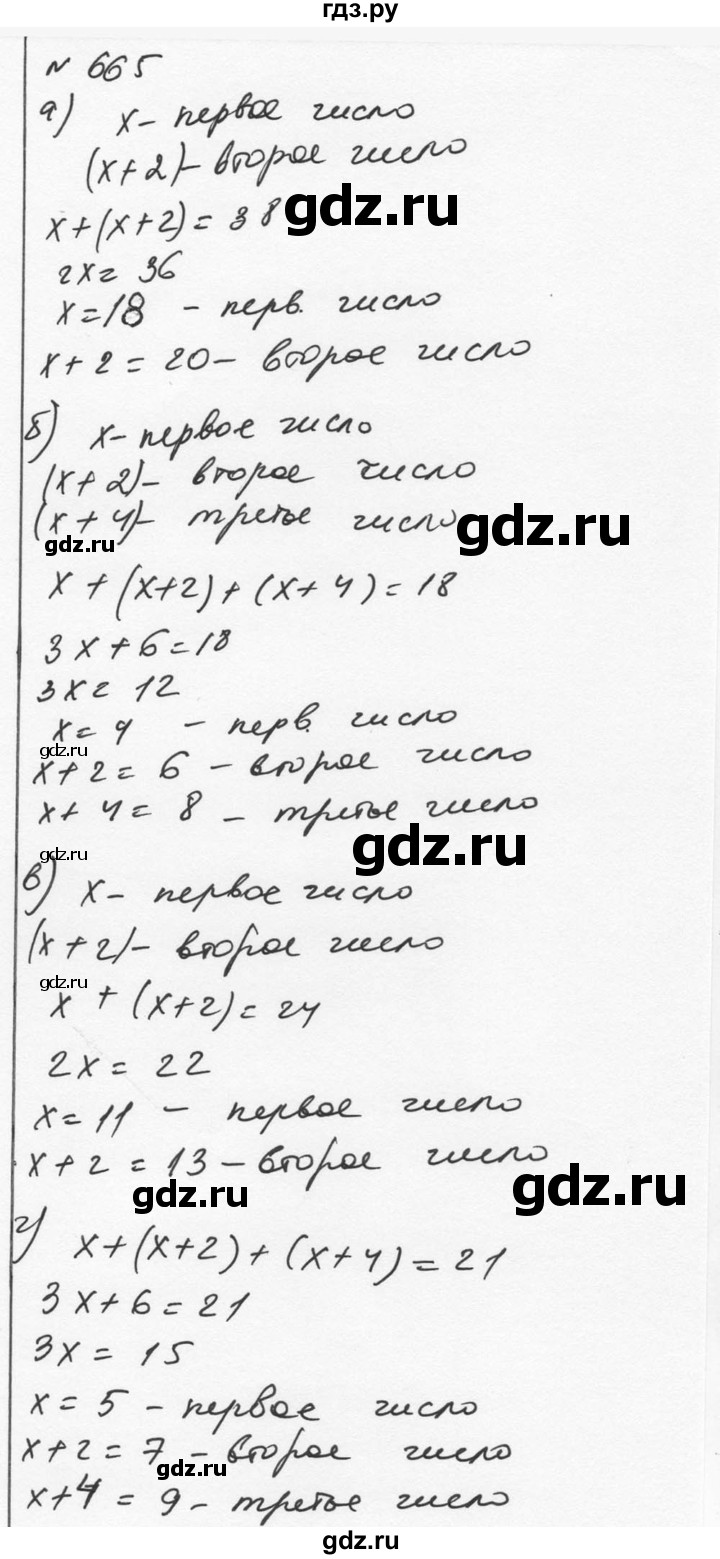 гдз.ру
№ 665
а) x - первое число
(x+2) - второе число
x+(x+2) = 38
gdz.ru
2x = 36
x = 18 - перв. число
x+2 = 20 - второе число
б) x - первое число
(x+2) - второе число
(x+4) - третье число
gdz.ru
gdz.ru
x + (x+2) + (x+4) = 18
3x+6 = 18
3x = 12
x = 4 - перв. число
gdz.ru
x+2 = 6 - второе число
x+4 = 8 - третье число
gdz.ru
gdz.ru
в) x - первое число
(x+2) - второе число
gdz.ru
x + (x+2) = 24
2x = 22
x = 11 - первое число
x+2 = 13 - второе число
gdz.ru
gdz.ru
г) x+(x+2)+(x+4) = 21
3x+6 = 21
3x = 15
x = 5 - первое число
x+2 = 7 - второе число
gdz.ru
x+4 = 9 - третье число
gdz.ru